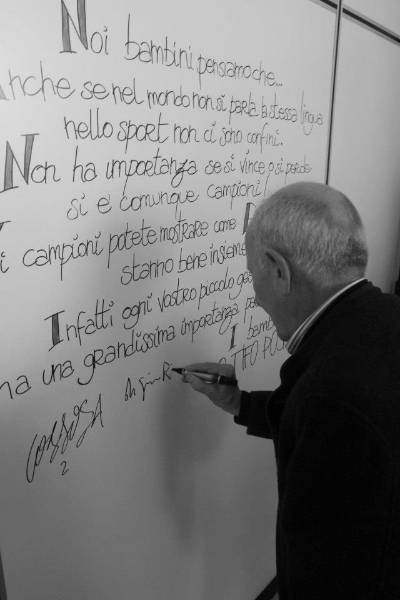 Noi bambini pensiamo che...
Anche se nel mondo non si parla la stessa lingua
nello sport non ci sono confini.
Non ha importanza se si vince o si perde
si è comunque campioni
i campioni potete mostrare come
stanno bene insieme
Infatti ogni vostro piccolo
ha una grandissima importanza
I bambi
TIFO
2